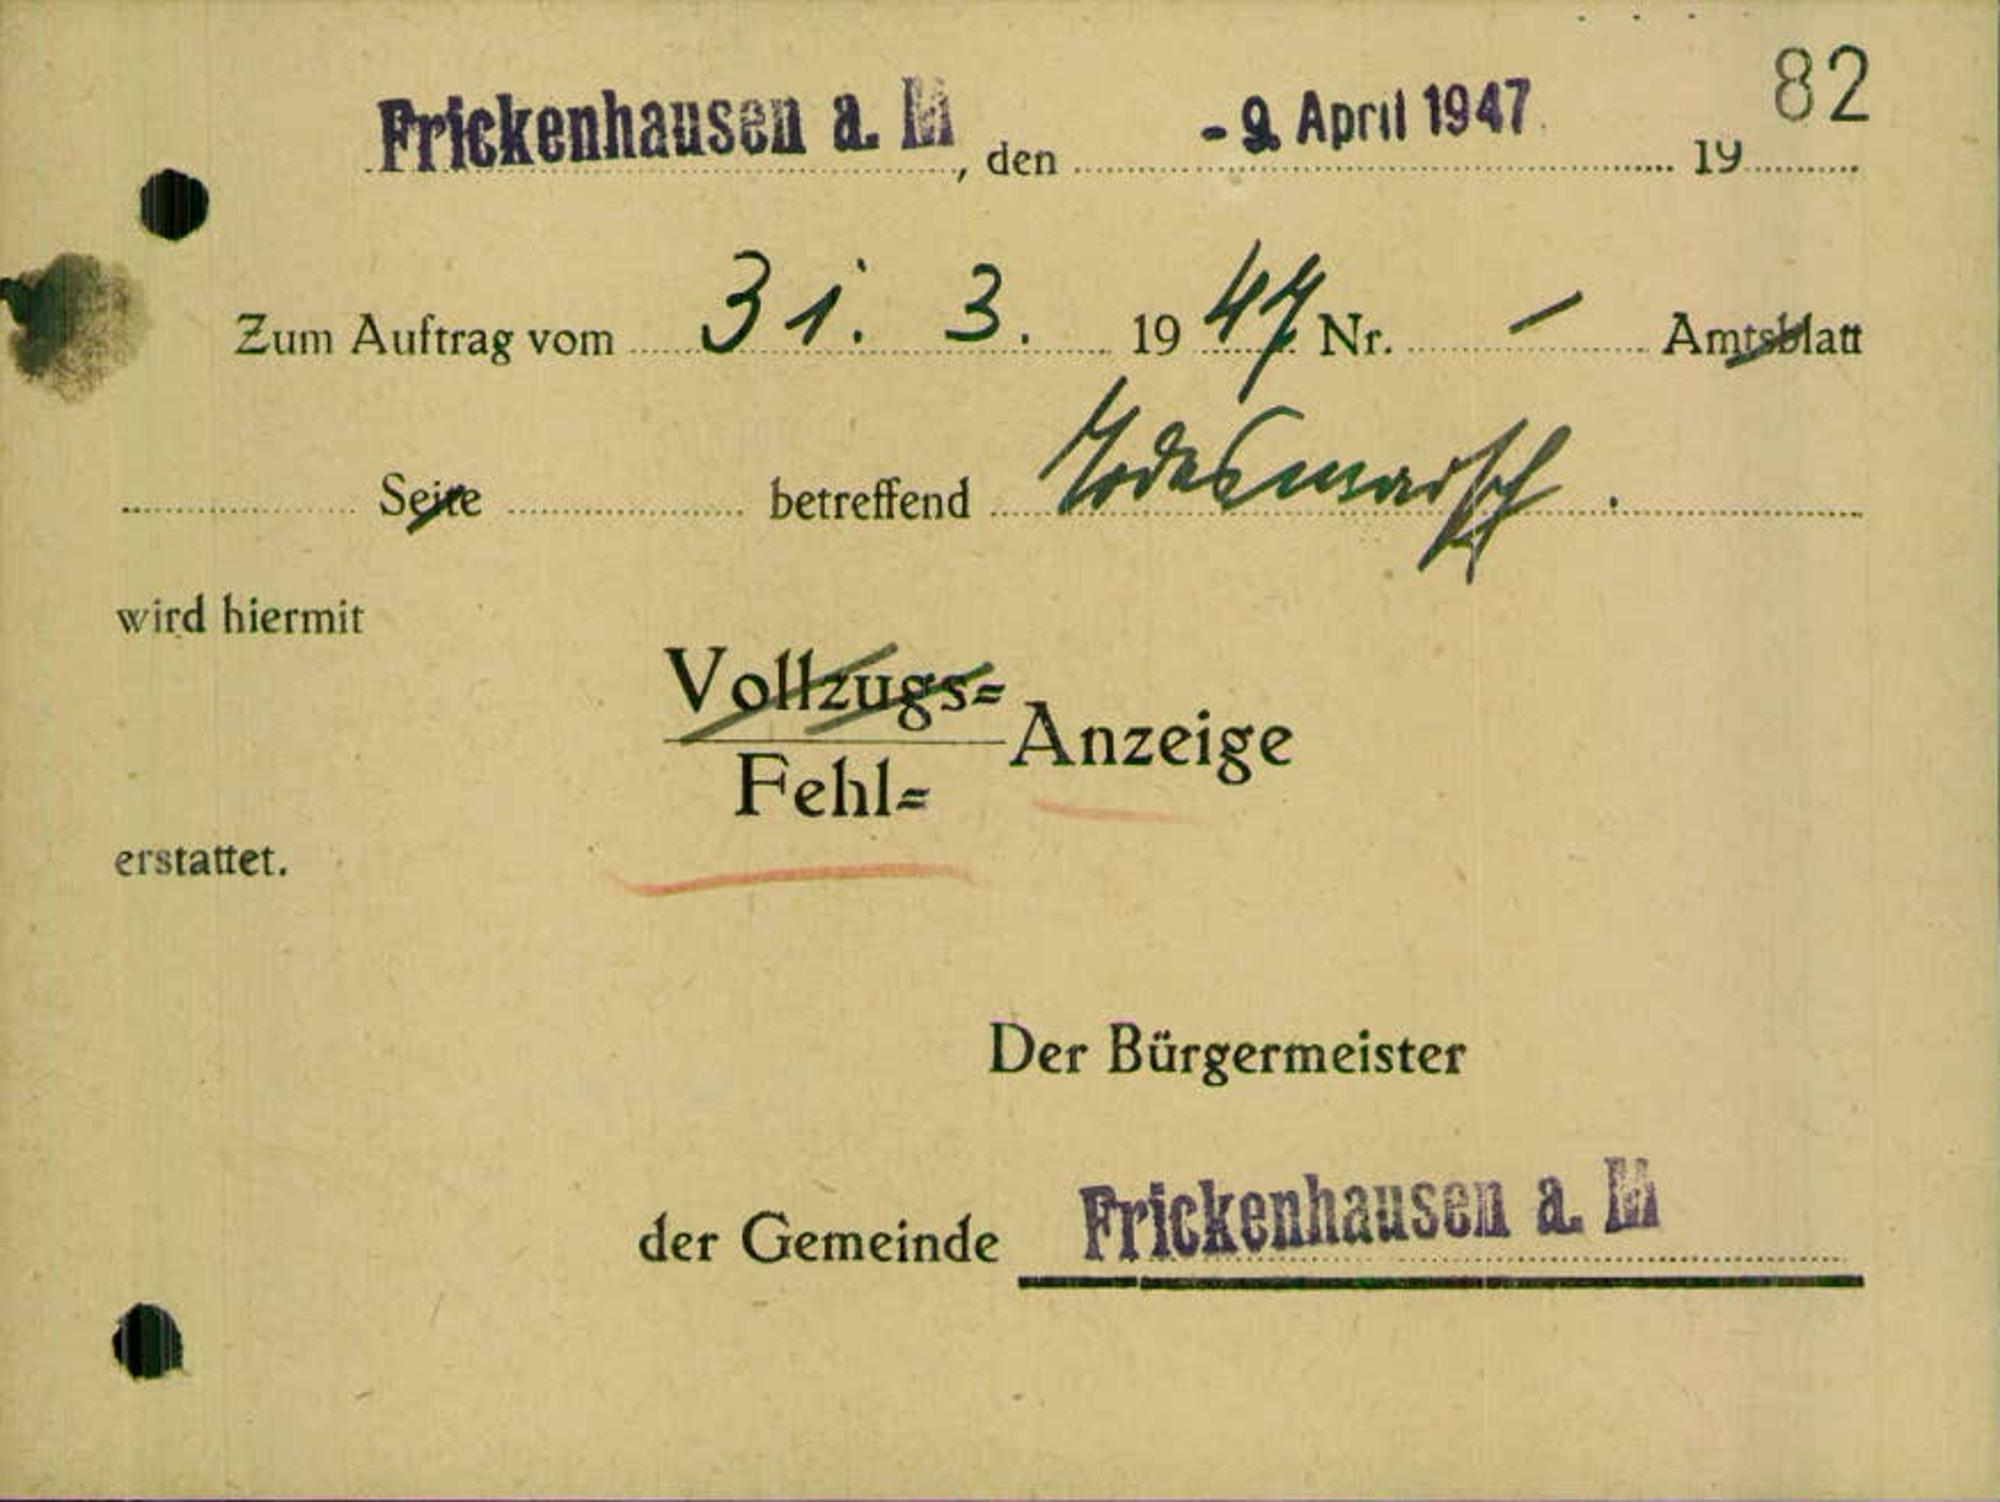 82
Frickenhausen a. M, den - 9. April 1947 19
Zum Auftrag vom 31. 3. 1947 Nr. — Amtsblatt
Seite betreffend Todesmarsch.
wird hiermit
Vollzugs=
Anzeige
Fehl=
erstattet.
Der Bürgermeister
der Gemeinde Frickenhausen a. M